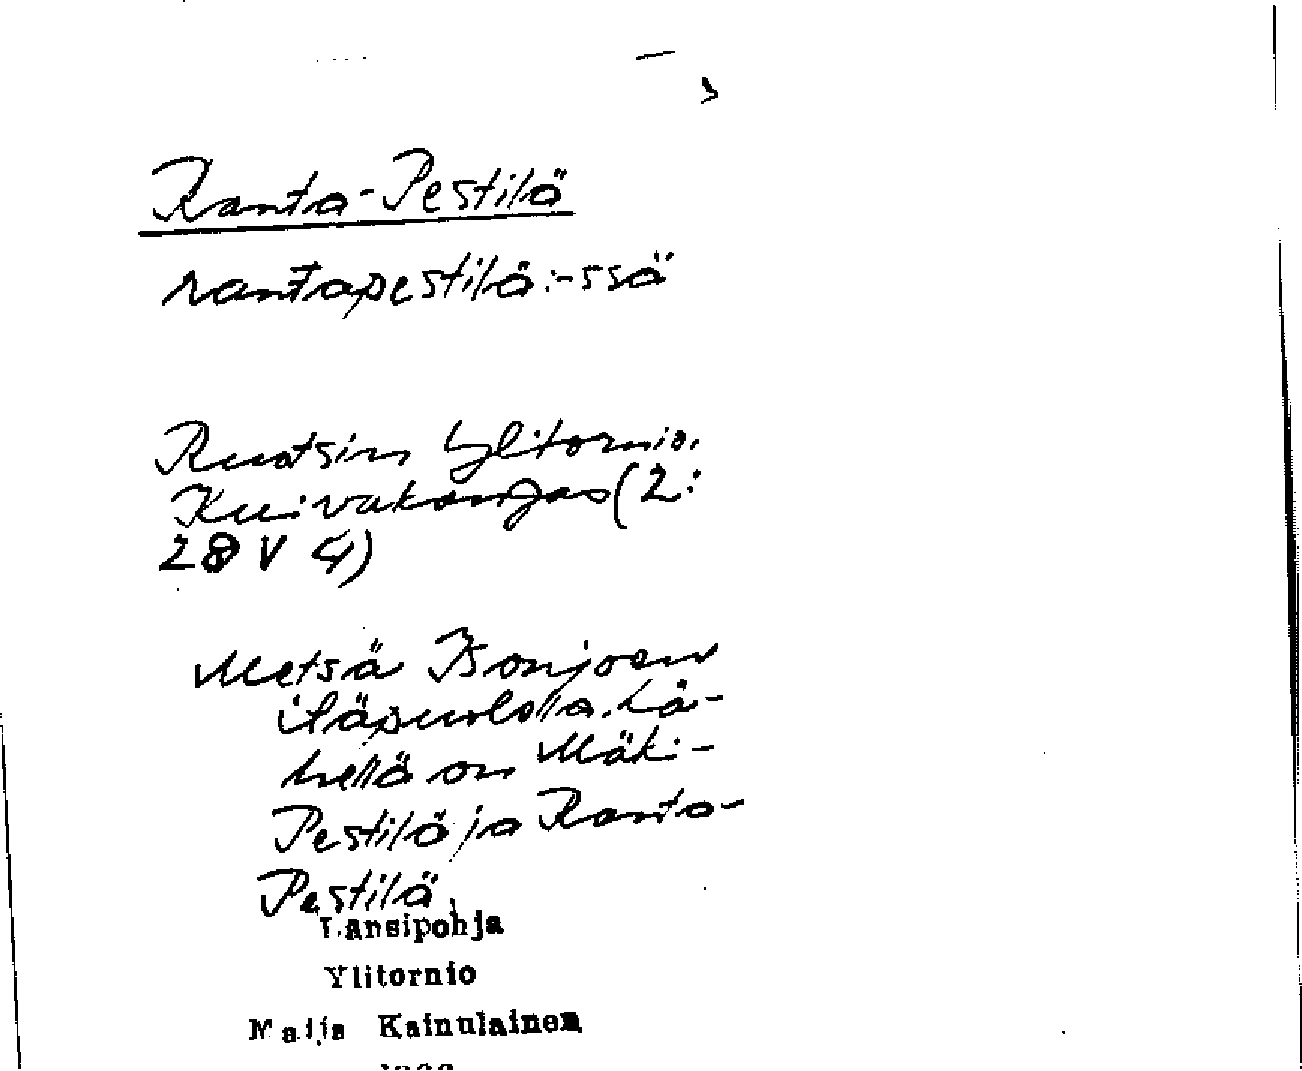 Ranta-Pestilä
rantapestilä:-ssä
Ruotsin Ylitornio.
Kuivakangas (2:
28 V 4)
Metsä Isonjoen
itäpuolella. Lä-
hellä on Mäki-
Pestilä ja Ranta-
Pestilä.
Länsipohja
Ylitornio
Maija Kainulainen